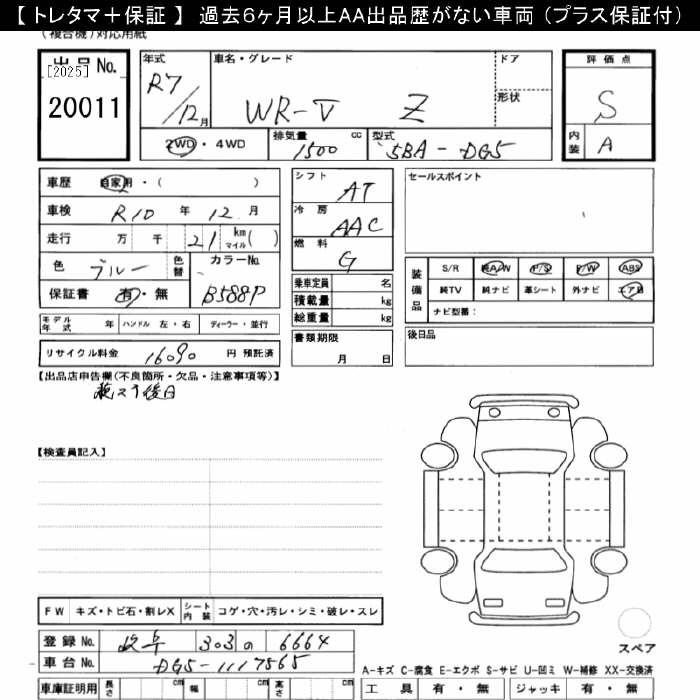 【トレタマ＋保証】 過去6ヶ月以上AA出品歴がない車両（プラス保証付）
（複合機）対応用紙
出品No. [2025] 20011
年式 R7/12月
車名・グレード WR-V Z
ドア
形状
評価点 S
内装 A
2WD・4WD
排気量 1500 cc
型式 5BA-DG5
車歴 自家用・（ ）
車検 R10年12月
走行 万 千 21 km マイル( )
色 ブルー 色替
カラーNo. B588P
保証書 有・無
シフト AT
冷房 AAC
燃料 G
乗車定員 名
積載量 kg
総重量 kg
セールスポイント
装備品 S/R 純A/W P/S P/W ABS
純TV 純ナビ 革シート 外ナビ エア B
ナビ型番：
モデル年式 年 ハンドル 左・右 ディーラー・並行
書類期限 月 日
後日品
リサイクル料金 16090 円 預託済
【出品店申告欄(不良箇所・欠品・注意事項等)】
【検査員記入】
FW キズ・トビ石・割レX シート内装 コゲ・穴・汚レ・シミ・破レ・スレ
登録No. 岐阜 303 の 6664
車台No. DG5-1117565
スペア
A-キズ C-腐食 E-エクボ S-サビ U-凹ミ W-補修 XX-交換済
車庫証明用 長さ cm 幅 cm 高さ cm
工具 有・無 ジャッキ 有・無